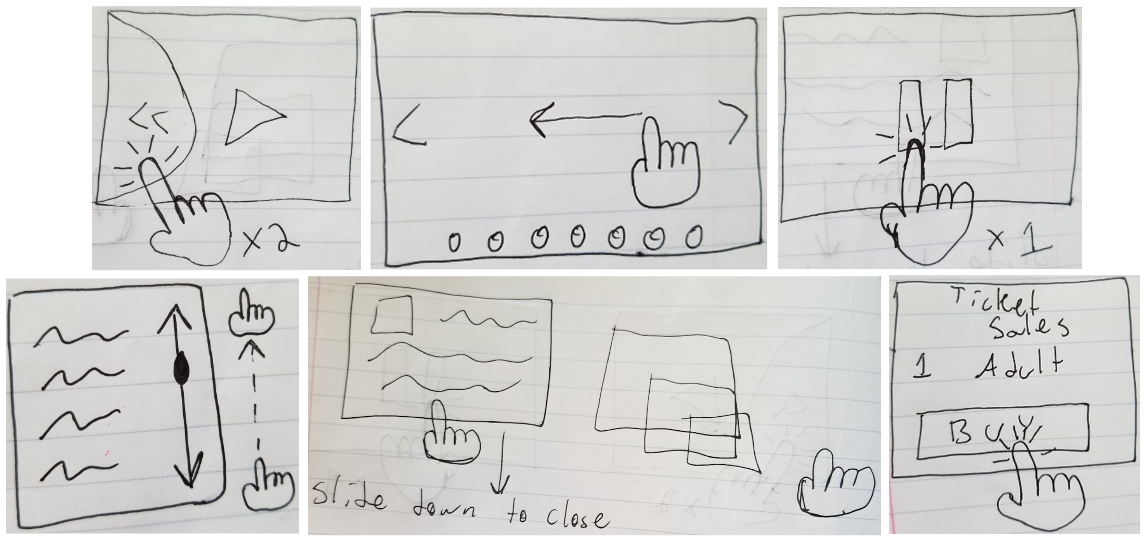 x2
x1
slide down to close
Ticket
Sales
1 Adult
BUY